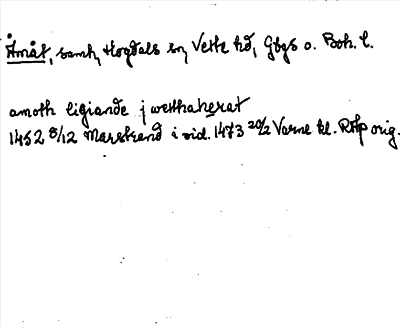 Åmåt, samh, Hogdals sn, Vette hd, Gbgs o. Boh. l.
amoth ligiande j wetthaherat
1452 8/12 Marstrand i vid. 1473 20/2 Varne kl. RAp orig.